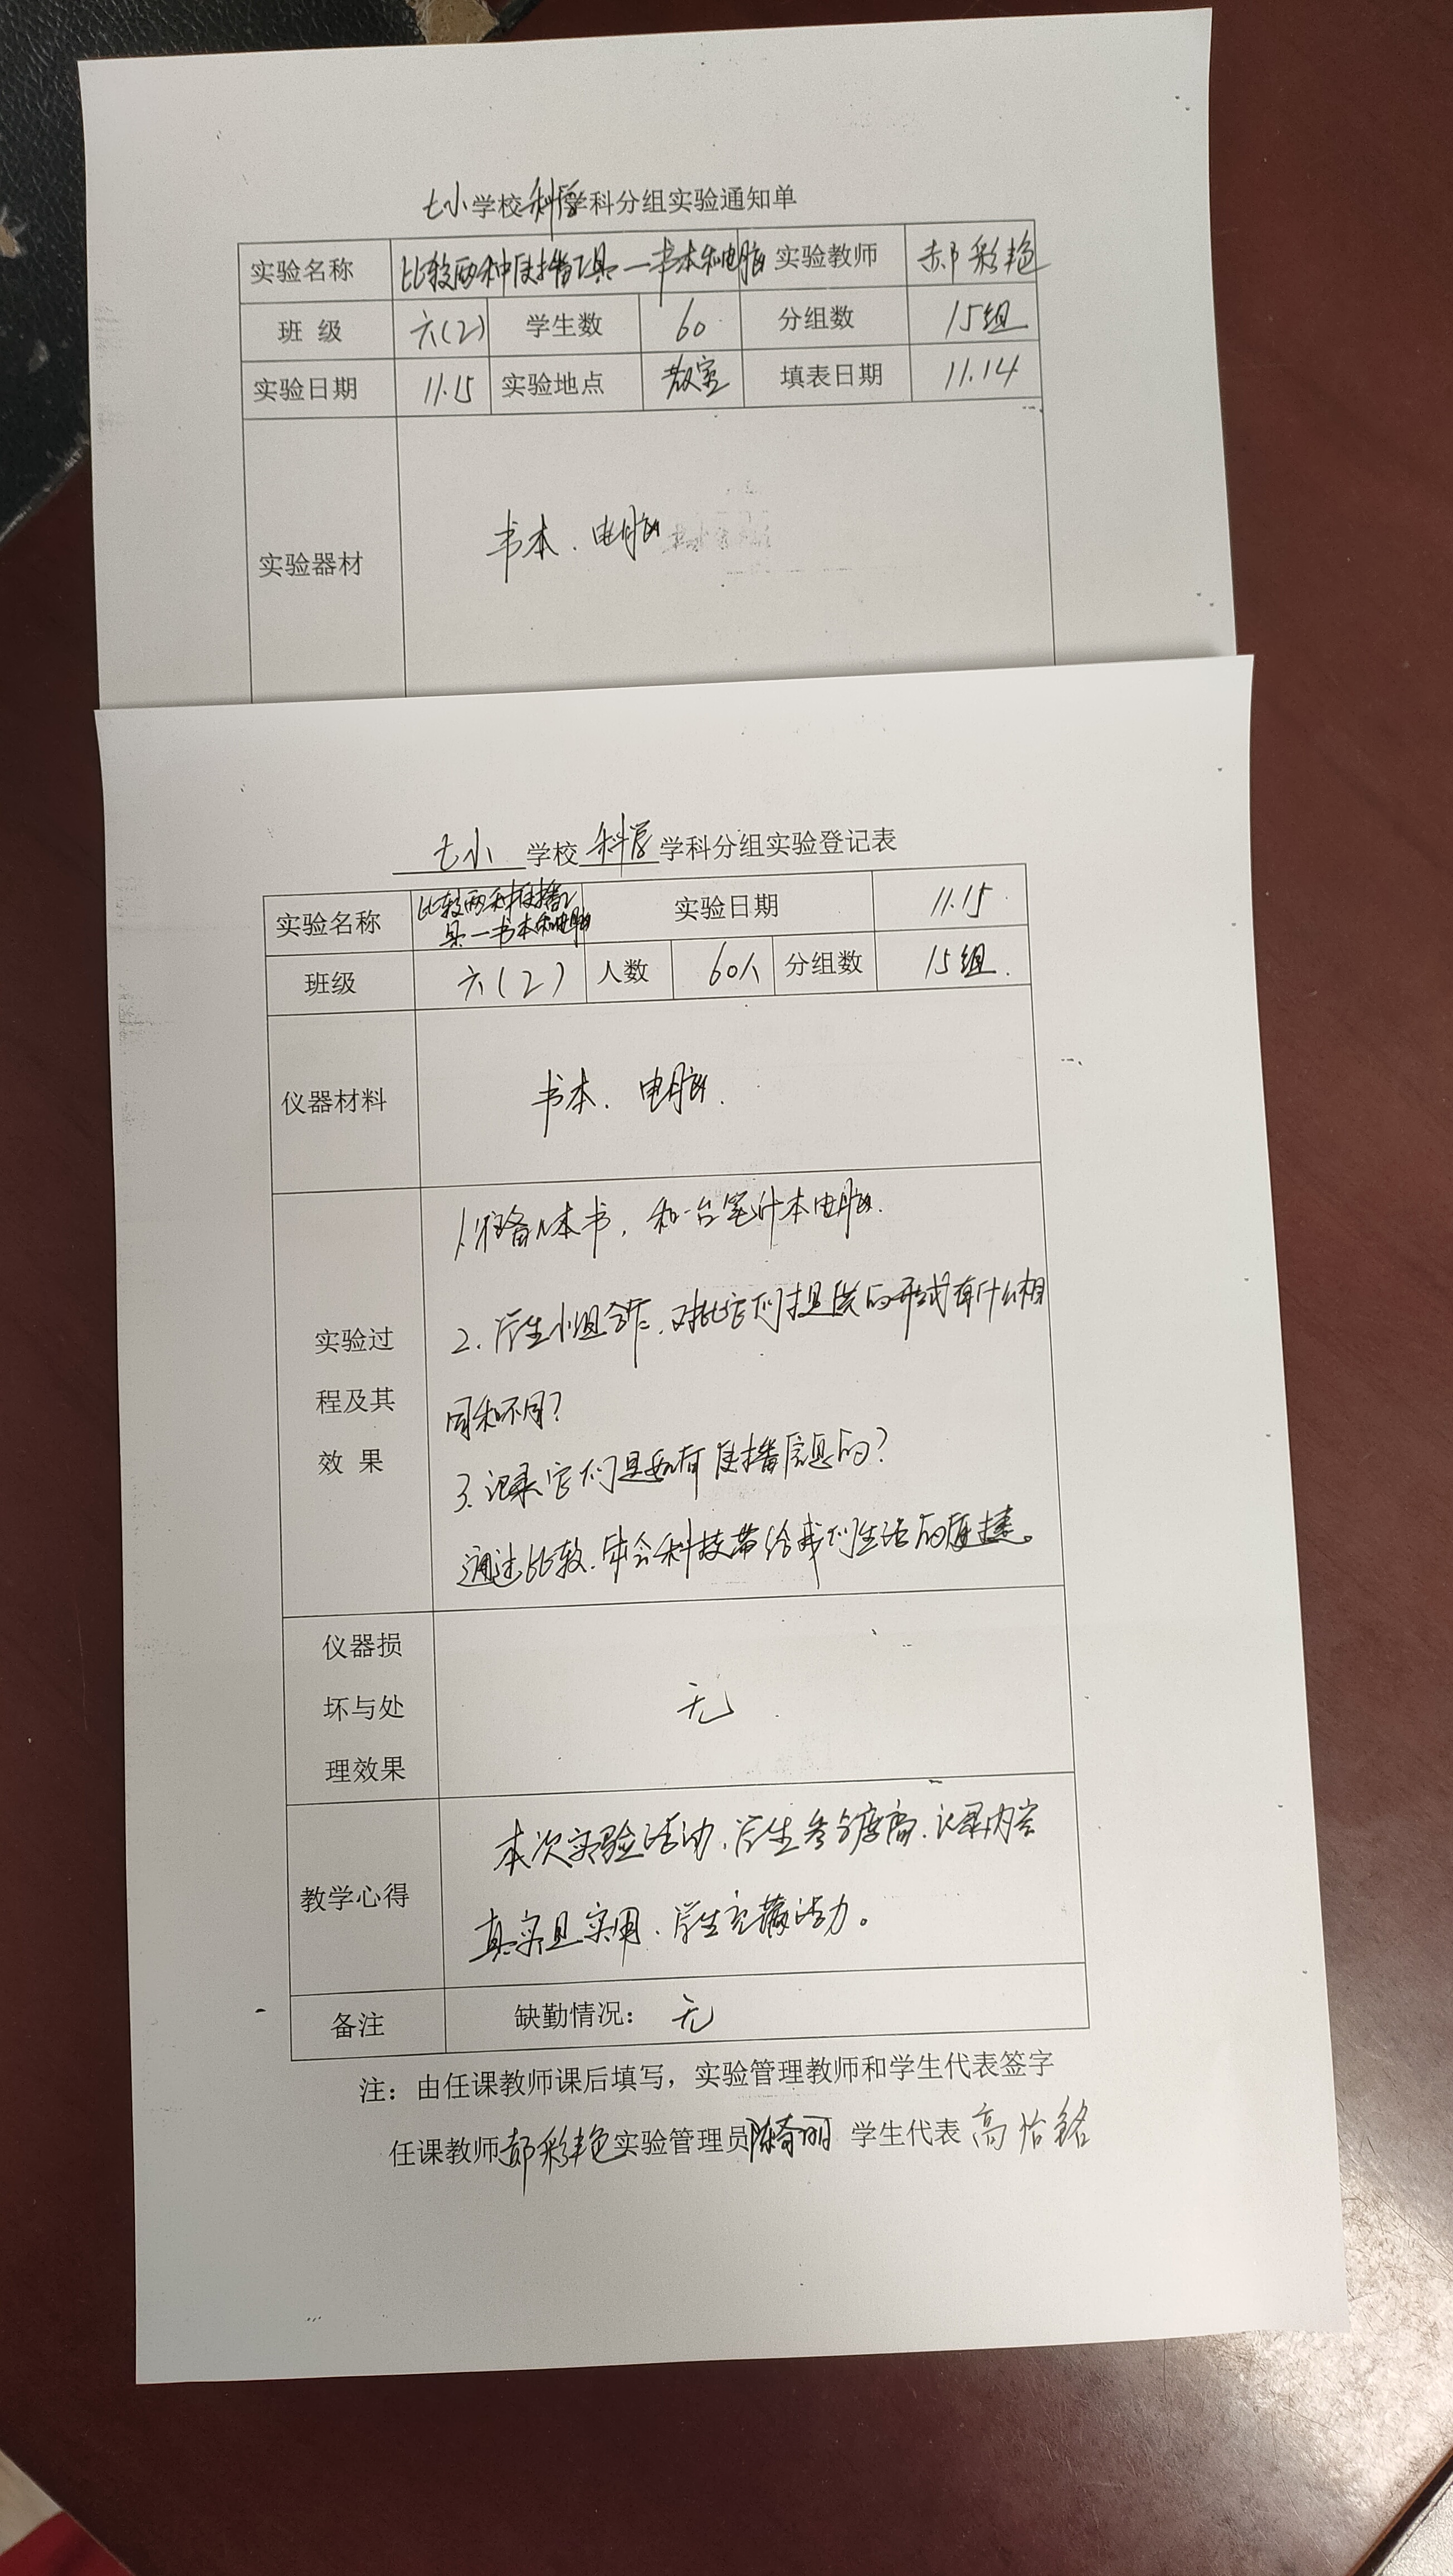 七小学校科学学科分组实验通知单
实验名称 比较两种传播工具—书本和电脑 实验教师 郝彩艳
班 级 六(2) 学生数 60 分组数 15组
实验日期 11.15 实验地点 教室 填表日期 11.14
实验器材 书本、电脑
七小 学校 科学 学科分组实验登记表
实验名称 比较两种传播工
具—书本和电脑 实验日期 11.15
班级 六(2) 人数 60人 分组数 15组.
仪器材料 书本、电脑.
1.准备几本书,和一台笔计本电脑.
2.学生小组合作,对比它们提供的形式有什么相
同和不同?
3.记录它们是如何传播信息的?
通过比较,体会科技带给我们生活的便捷。
实验过
程及其
效 果
仪器损
坏与处
理效果
无
教学心得
本次实验活动,学生参与度高,记录内容
真实且实用,学生充满活力。
备注 缺勤情况: 无
注:由任课教师课后填写,实验管理教师和学生代表签字
任课教师郝彩艳实验管理员陈奇丽 学生代表高怡铭